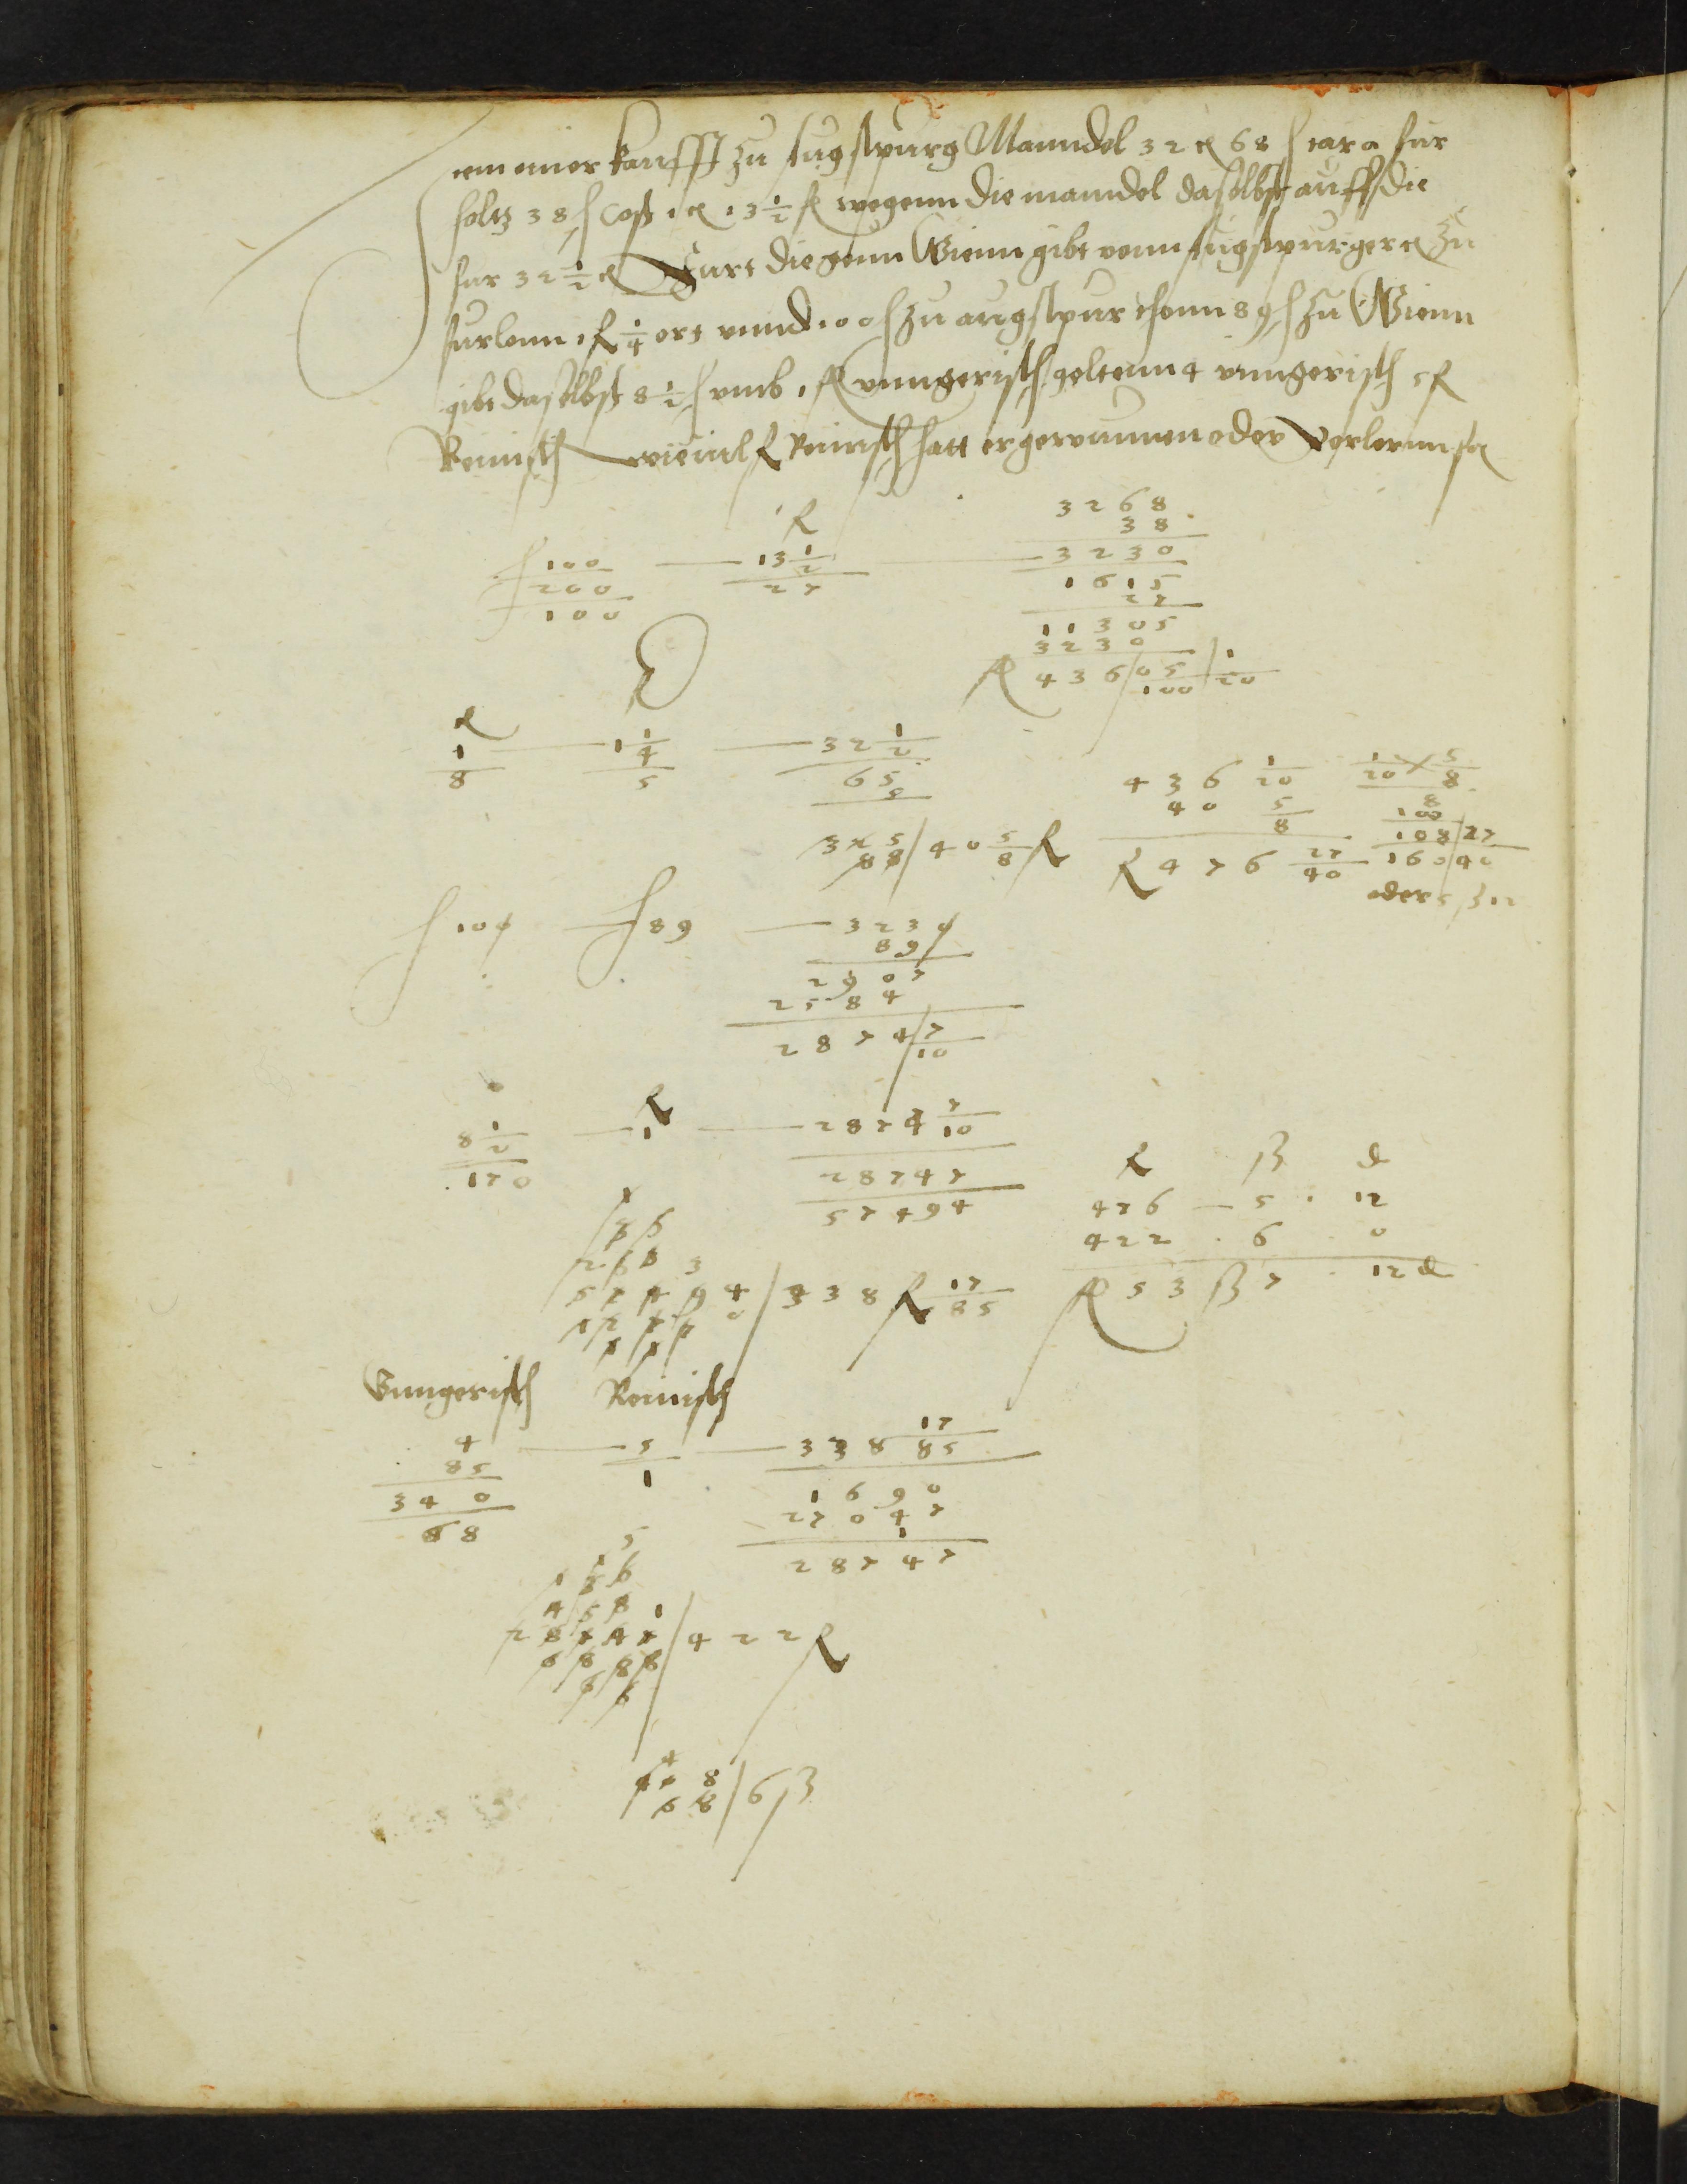 Item einer kaufft zu augspurg Manndel 32 c 68 lb tara fur
holtz 38 lb Cost 1 c 13 1/2 fl wegenn die manndel daselbst auff die
fur 32 1/2 c Furt die genn Wienn gibt vonn augspurger c zu
furlonn 1 fl 1/4 ort vnnd 100 lb zu augspur thonn 89 lb zu Wienn
gibt daselbst 8 1/2 lb vmb 1 fl vnngerisch geltenn 4 vnngerisch 5 fl
Reinisch wieuil fl Reinisch hatt er gewunnen oder verlornn
fl 3268
38
lb 100 — 13 1/2 — 3230
200 27 1615
100 27
11305
3230
fl 436 05/100 1/20
c
1 — 1 1/4 — 32 1/2
8 5 65
5
325 / 40 5/8 fl
88
436 1/20 1/20 × 5/8
40 5/8 8
100
108 / 27
fl 476 27/40 160 / 40
oder 5 ß 12
lb 100 — lb 89 — 3230
89
2907
2584
2874 7/10
fl
8 1/2 — 1 — 2874 7/10
170 28747
57494
57494 / 338 fl 17/85
fl ß d
476 — 5 . 12
422 . 6 . 0
fl 53 ß 7 . 12 d
Vnngerisch Reinisch
4 — 5 — 338 17/85
85 1
340 1690
68 27047
1
28747
28747 / 422 fl
408 / 6 ß
68